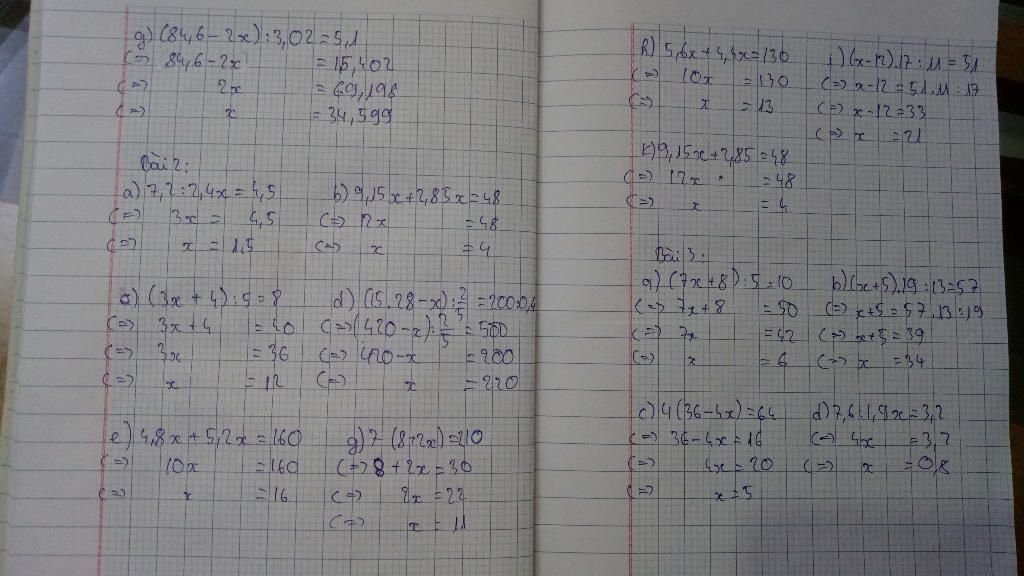 g) (84,6 - 2x) : 3,02 = 5,1
<=> 84,6 - 2x = 15,402
<=> 2x = 69,198
<=> x = 34,599
Bài 2:
a) 7,2 : 2,4x = 4,5
<=> 3x = 4,5
<=> x = 1,5
b) 9,15x + 2,85x = 48
<=> 12x = 48
<=> x = 4
c) (3x + 4) : 5 = 8
<=> 3x + 4 = 40
<=> 3x = 36
<=> x = 12
d) (15.28 - x) : 2/5 = 200:0,4
<=> (420 - x) : 2/5 = 500
<=> 420 - x = 200
<=> x = 220
e) 4,8x + 5,2x = 160
<=> 10x = 160
<=> x = 16
g) 7 (8 + 2x) = 210
<=> 8 + 2x = 30
<=> 2x = 22
<=> x = 11
h) 5,6x + 4,4x = 130
<=> 10x = 130
<=> x = 13
i) (x - 12).17 : 11 = 51
<=> x - 12 = 51.11 : 17
<=> x - 12 = 33
<=> x = 21
k) 9,15x + 2,85 = 48
<=> 12x = 48
<=> x = 4
Bài 3:
a) (7x + 8) : 5 = 10
<=> 7x + 8 = 50
<=> 7x = 42
<=> x = 6
b) (x + 5).19 : 13 = 57
<=> x + 5 = 57.13 : 19
<=> x + 5 = 39
<=> x = 34
c) 4 (36 - 4x) = 64
<=> 36 - 4x = 16
<=> 4x = 20
<=> x = 5
d) 7,6 : 1,9x = 3,2
<=> 4x = 3,2
<=> x = 0,8